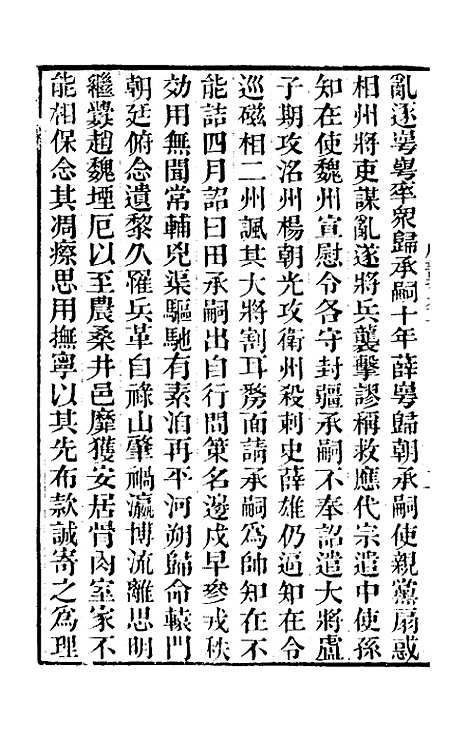 亂逐㟧㟧率衆歸承嗣十年薛㟧歸朝承嗣使親黨扇惑
相州將吏謀亂遂將兵襲擊謬稱救應代宗遣中使孫
知在使魏州宣慰令各守封疆承嗣不奉詔遣大將盧
子期攻洺州楊朝光攻衛州殺刺史薛雄仍逼知在令
巡磁相二州諷其大將割耳剺面請承嗣爲帥知在不
能詰四月詔曰田承嗣出自行間策名邊戍早參戎秩
効用無聞嘗輔兇渠驅馳有素洎再平河朔歸命轅門
朝廷俯念遺黎久罹兵革自祿山肇禍瀛博流離思明
繼釁趙魏堙厄以至農桑井邑靡獲安居骨肉室家不
能相保念其凋瘵思用撫寧以其先布款誠寄之爲理